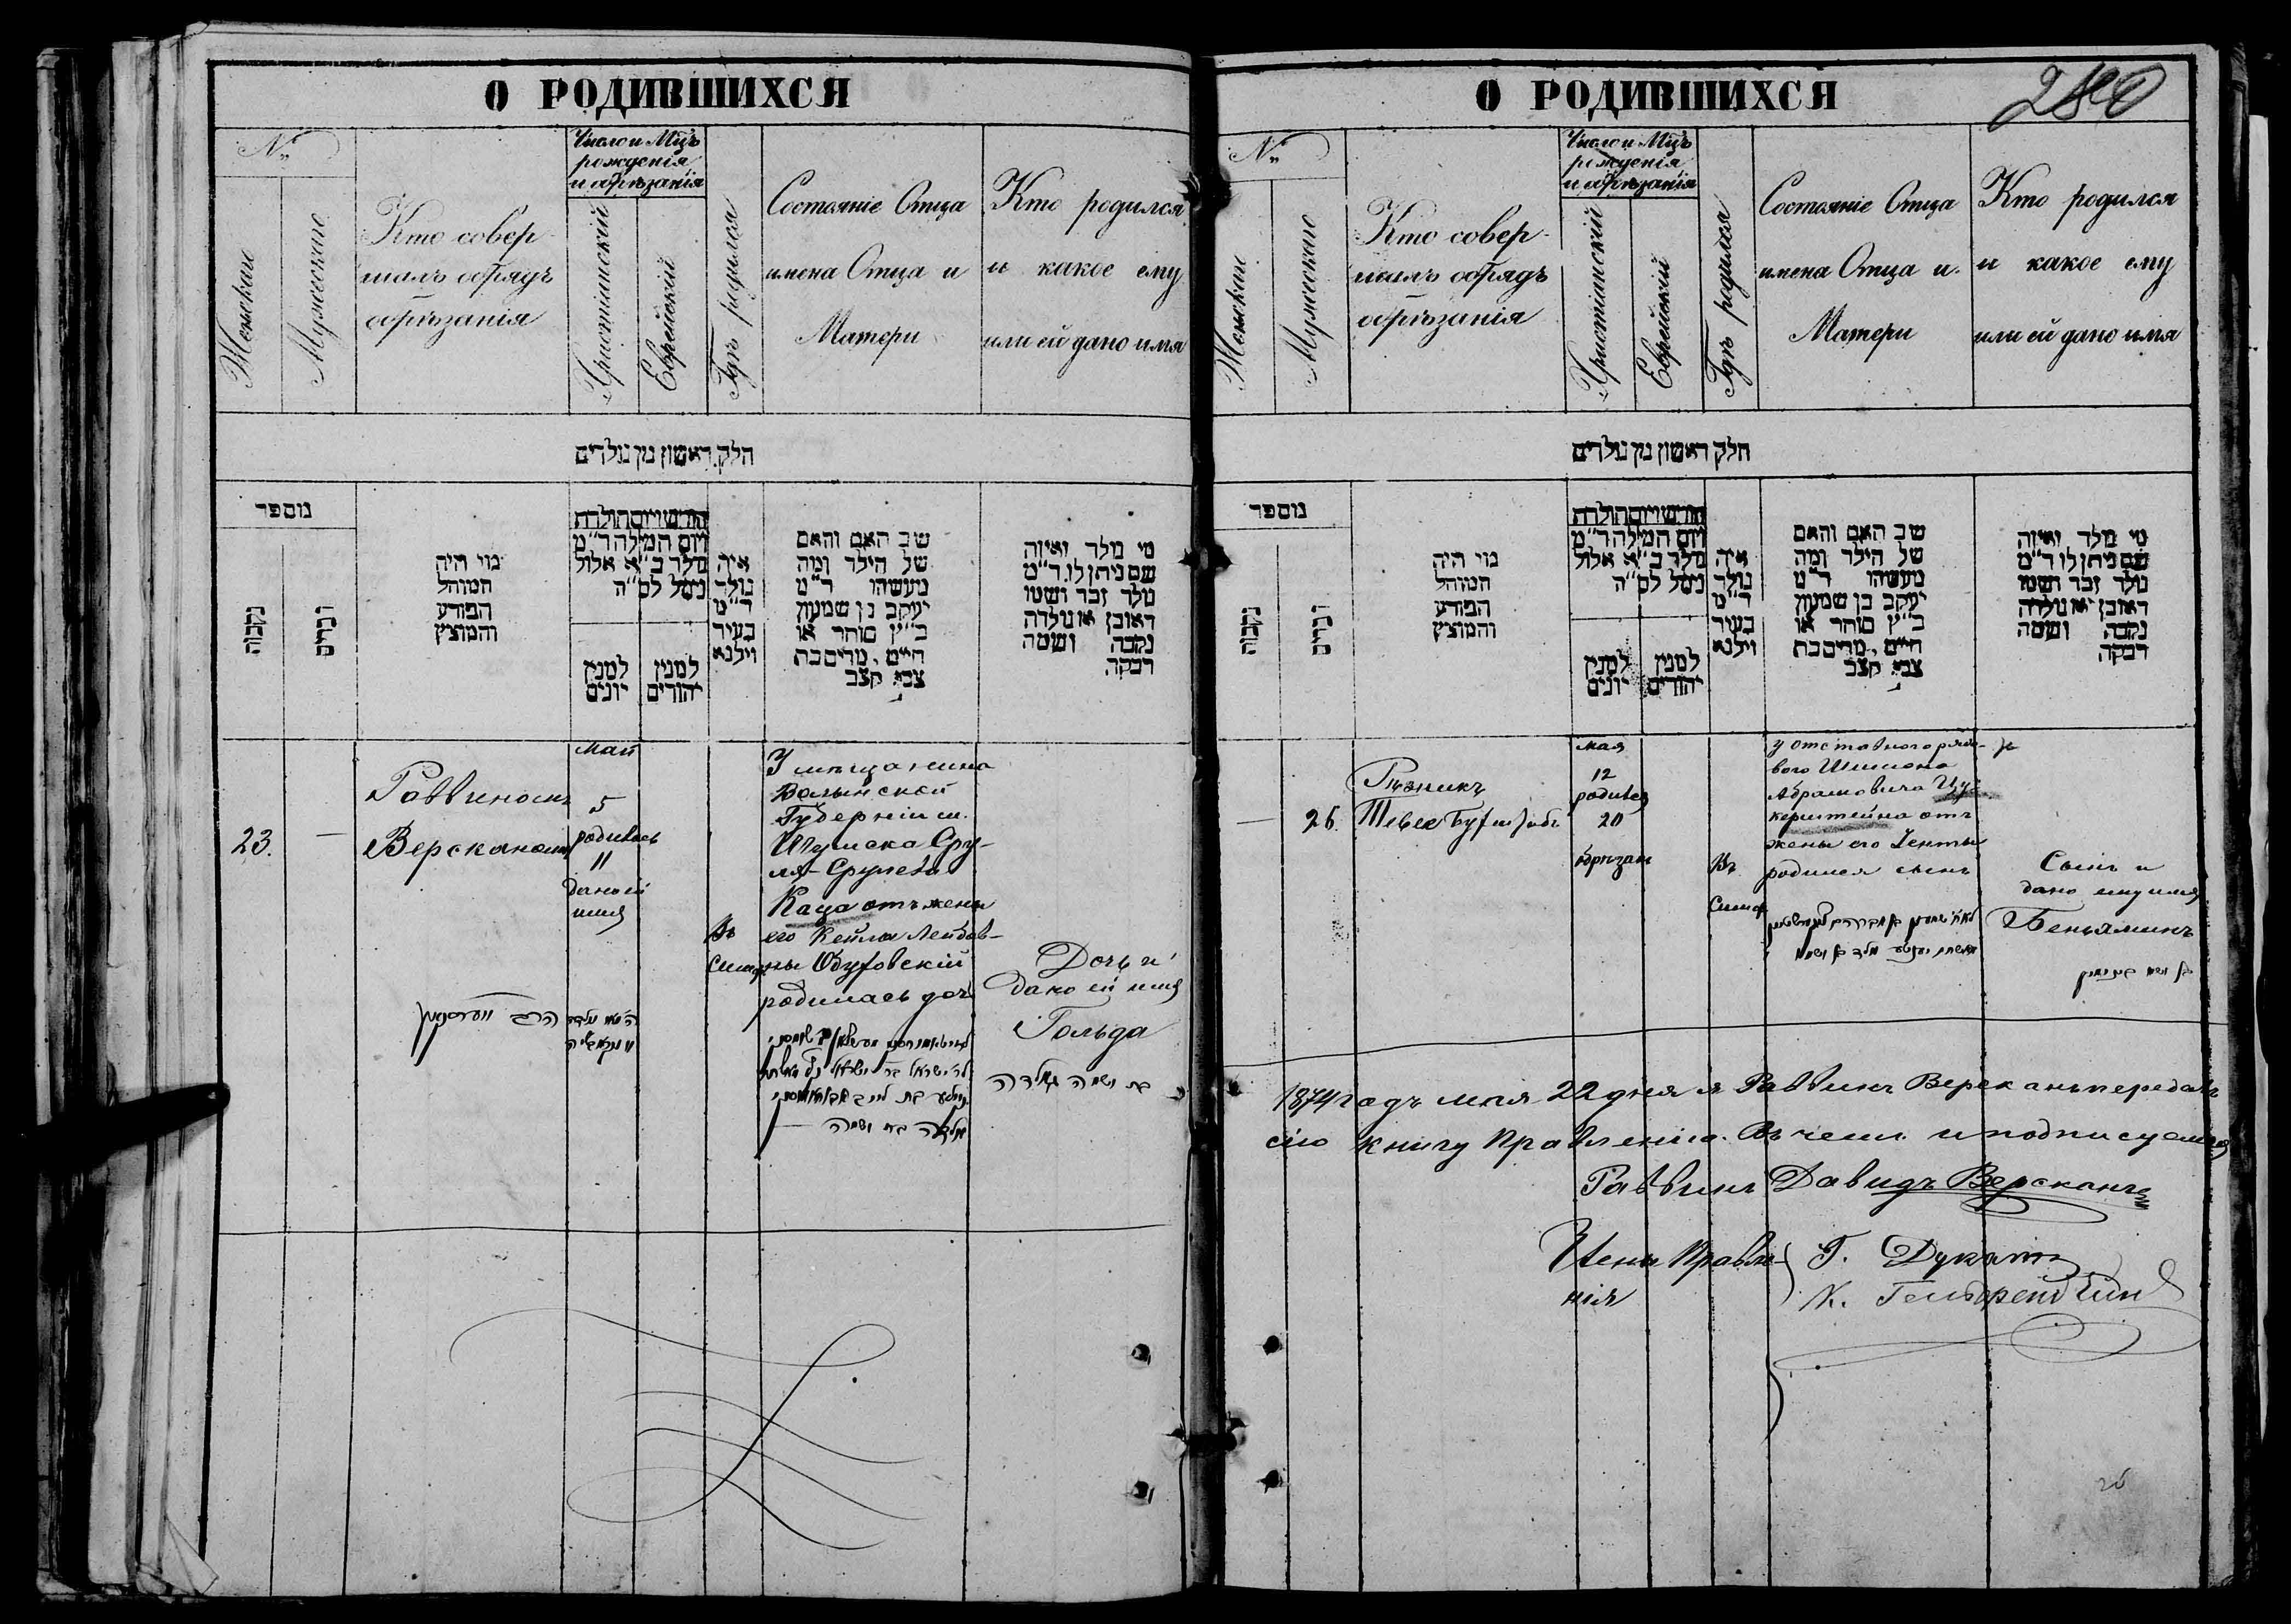 О РОДИВШИХСЯ
№
Женскаго
Мужескаго
Кто совер-
шалъ обрядъ
обрѣзанія
Число и Мцъ
рожденія
и обрѣзанія
Христіанскій
Еврейскій
Гдѣ родился
Состояніе Отца
имена Отца и
Матери
Кто родился
и какое ему
или ей дано имя
חלק ראשון מן נולדים
מספר
נקבות
זכרים
מוי היה
המוהל
הפורע
והמוצץ
חודש ויום הולדת
ויום המילה ד״מ
נולד ב״א אלול
נימל לס״ה
למנין
יונים
למנין
יהודים
איה
נולד
ד״מ
בעיר
וילנא
שב האם והאם
של הילד ומה
מעשהו ד״מ
יעקב בן שמעון
כ״ץ סוחר או
חיים, מרים בת
צבי קצב
מי נולד ואיזה
שם ניתן לו ד״מ
נולד זכר ושמו
ראובן או נולדה
נקבה ושמה
רבקה
23.
—
Раввиномъ
Версканомъ
май
5
родилась
11
дано ей
имя
Въ
Симф
У мѣщанина
Волынской
Губерніи м.
Шумска Сру-
ля-Срулева
Каца отъ жены
его Кейла Лейбов-
ны
родилась дочь
Дочь и
дано ей имя
Гольда
בת ושמה גאלדה
О РОДИВШИХСЯ
280
№
Женскаго
Мужескаго
Кто совер-
шалъ обрядъ
обрѣзанія
Число и Мцъ
рожденія
и обрѣзанія
Христіанскій
Еврейскій
Гдѣ родился
Состояніе Отца
имена Отца и
Матери
Кто родился
и какое ему
или ей дано имя
חלק ראשון מן נולדים
מספר
נקבות
זכרים
מוי היה
המוהל
הפורע
והמוצץ
חודש ויום הולדת
ויום המילה ד״מ
נולד ב״א אלול
נימל לס״ה
למנין
יונים
למנין
יהודים
איה
נולד
ד״מ
בעיר
וילנא
שב האם והאם
של הילד ומה
מעשהו ד״מ
יעקב בן שמעון
כ״ץ סוחר או
חיים, מרים בת
צבי קצב
מי נולד ואיזה
שם ניתן לו ד״מ
נולד זכר ושמו
ראובן או נולדה
נקבה ושמה
רבקה
—
26.
Рѣзникъ
Тевек
мая
12
родился
20
обрѣзан
Въ
Симф
у отставного рядо-
вого Шимона
Абрамовича Цу-
керштейна отъ
жены его Ченты
родился сынъ
Сынъ и
дано ему имя
Беньяминъ
בן ושמו בנימין
1874 годъ мая 22 дня я Раввинъ Версканъ передалъ
сію книгу Правленію. Въ чемъ и подписуемся
Раввинъ Давидъ Версканъ
Члены Правле-
нія
Г. Дукатъ
К.
26